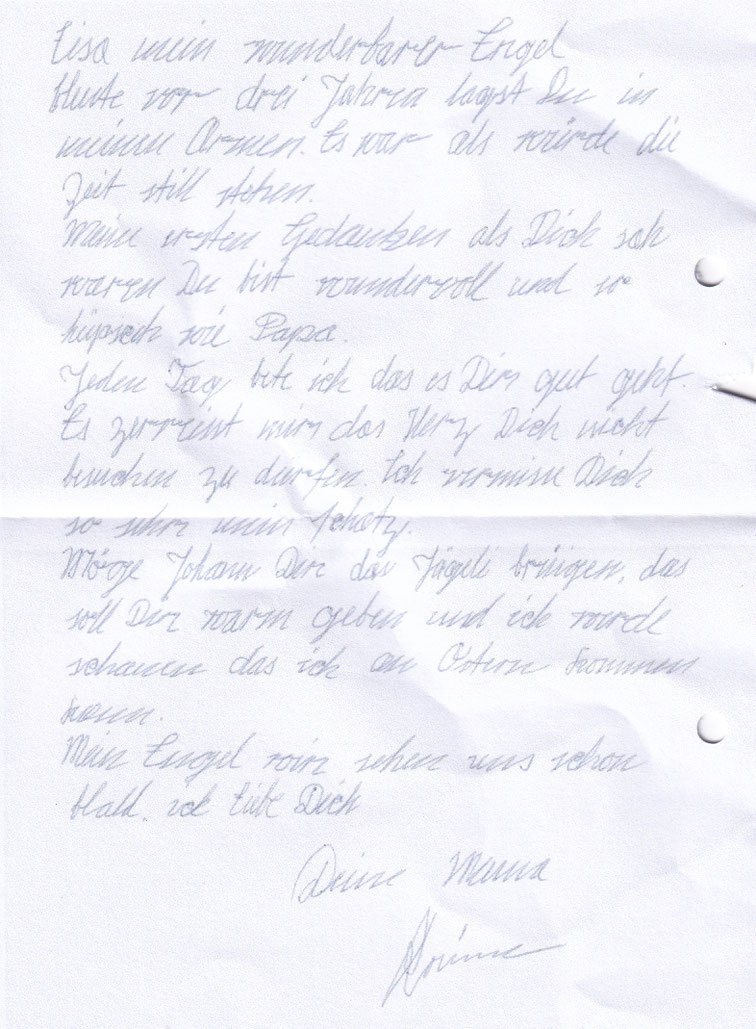 Lisa mein wunderbarer Engel
Heute vor drei Jahren lagst Du in
meinen Armen. Es war als würde die
Zeit still stehen.
Meine ersten Gedanken als Dich sah
waren Du bist wundervoll und so
hüpsch wie Papa.
Jeden Tag bete ich das es Dir gut geht.
Es zerreint mir das Herz Dich nicht
besuchen zu durfen. Ich vermisse Dich
so sehr mein Schatz.
Möge Johann Dir das Jägeli bringen, das
soll Dir warm geben und ich werde
schauen das ich an Ostern kommen
kann.
Mein Engel wir sehen uns schon
bald. ich liebe Dich
Deine Mama